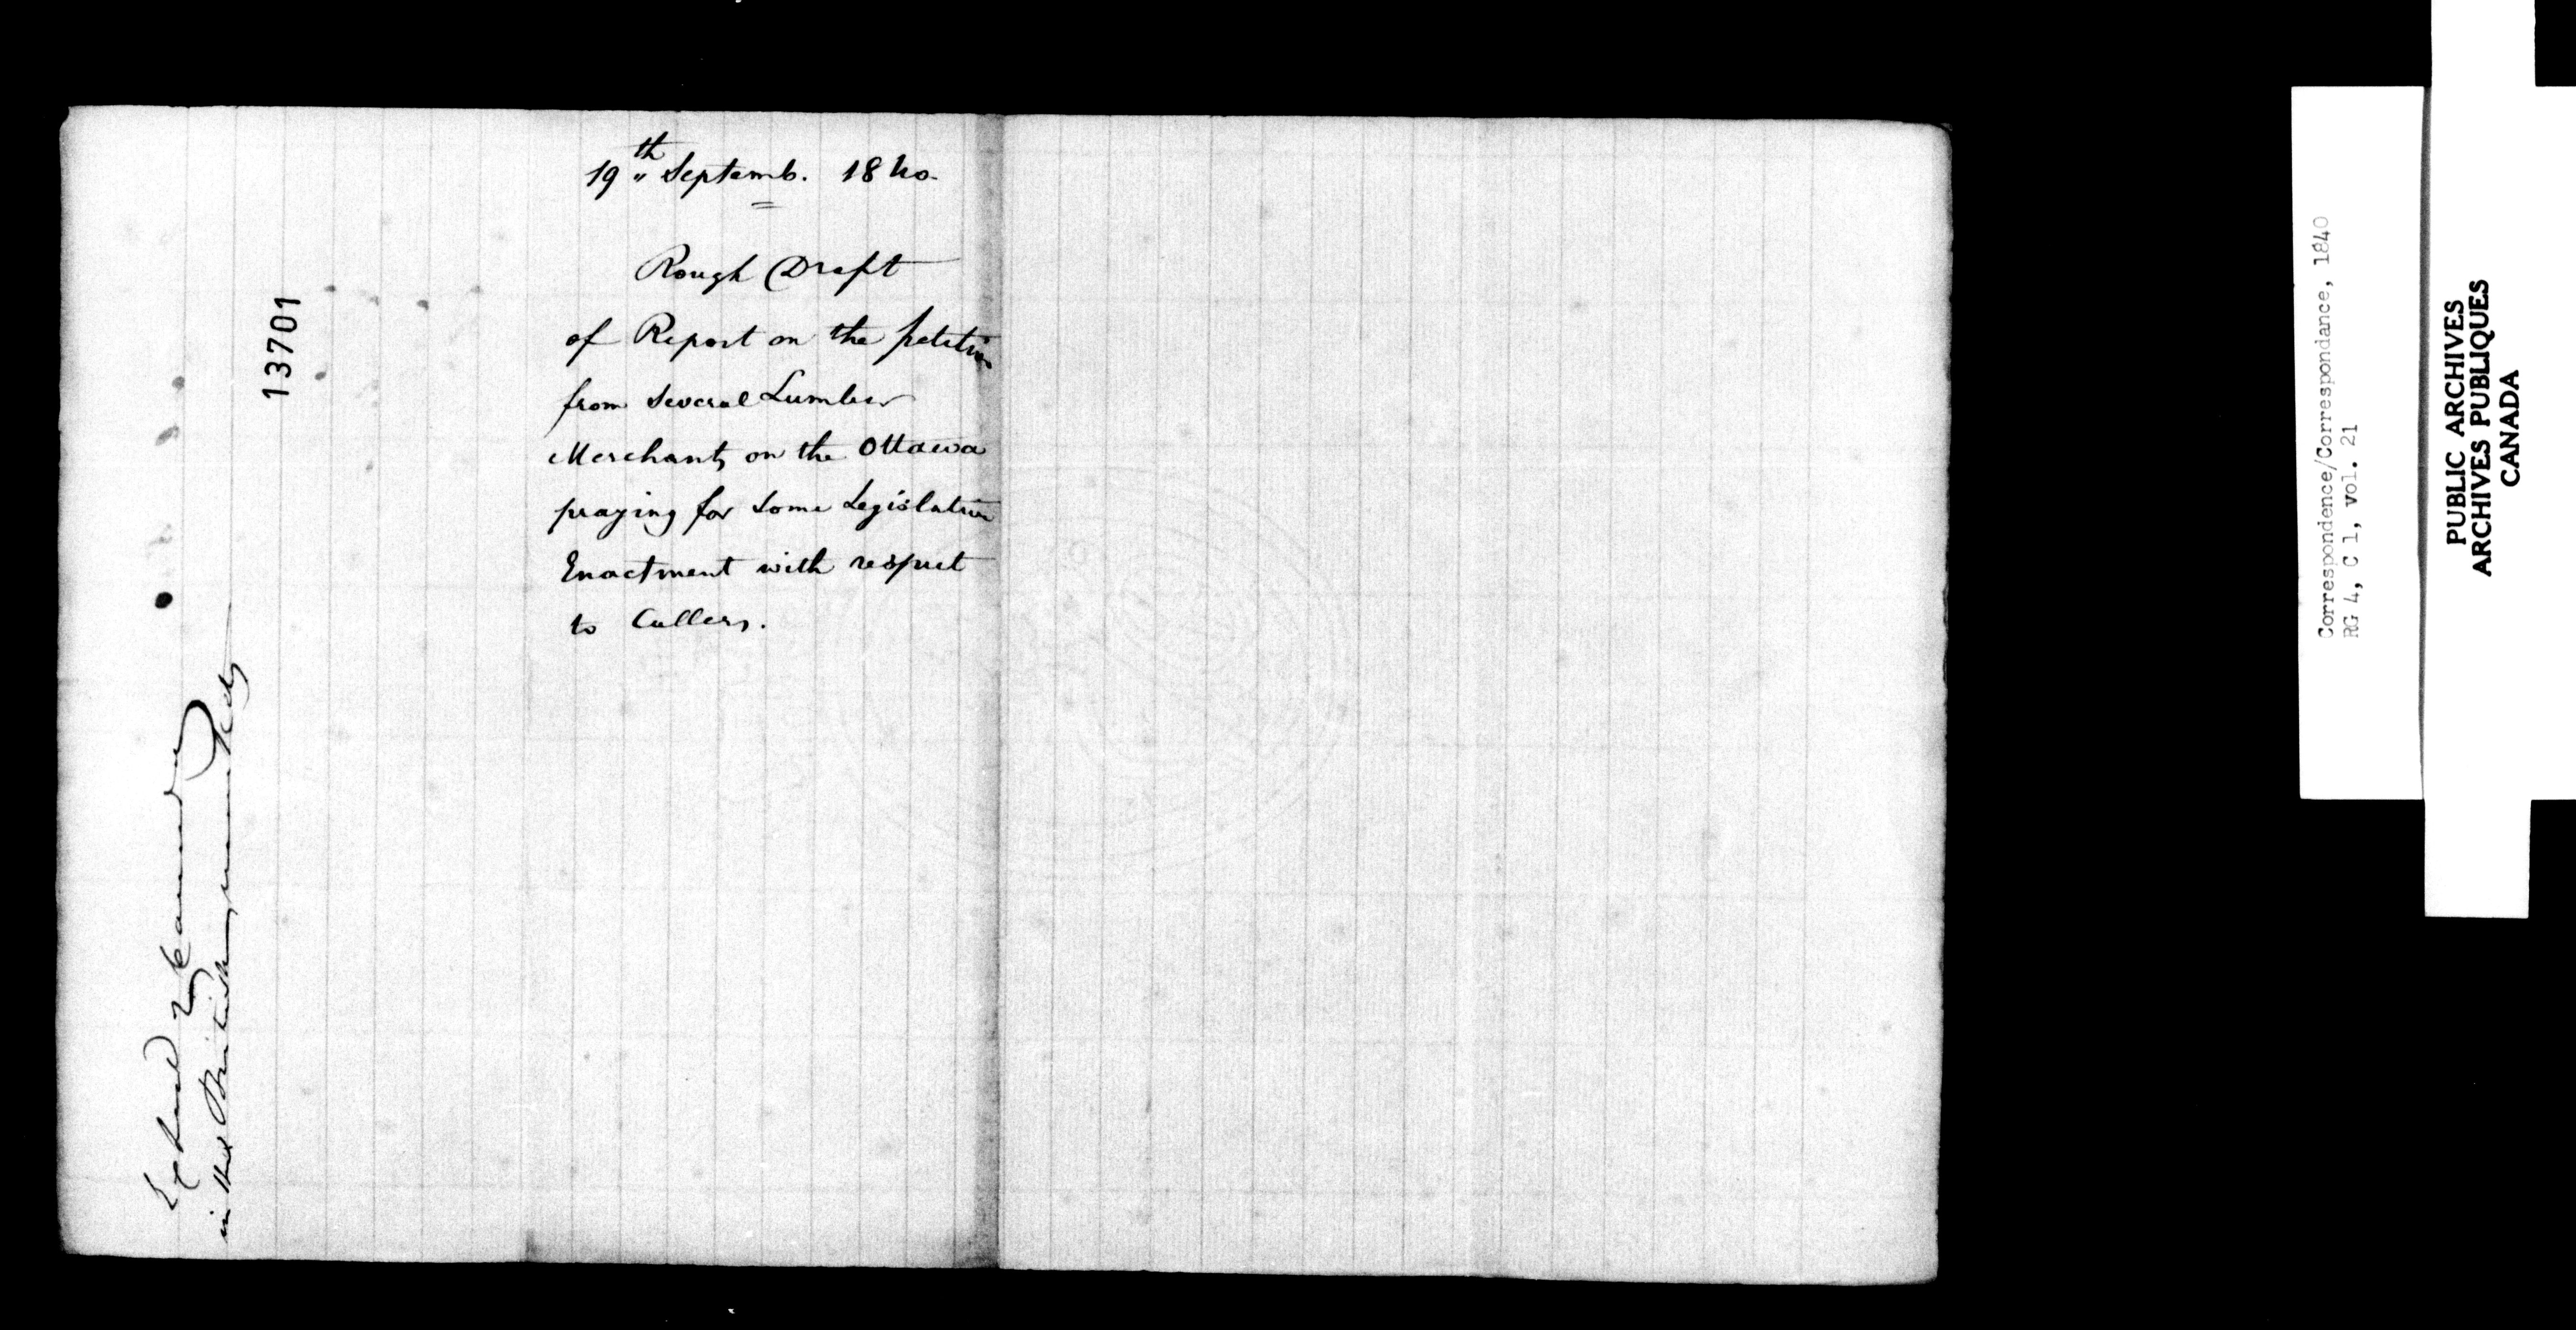 19th Septemb. 1840.
Rough Draft
of Report on the petition
from several Lumber
Merchants on the Ottawa
praying for some Legislative
Enactment with respect
to Cullers.
13701
in the
Correspondence/Correspondance, 1840
RG 4, C 1, vol. 21
PUBLIC ARCHIVES
ARCHIVES PUBLIQUES
CANADA